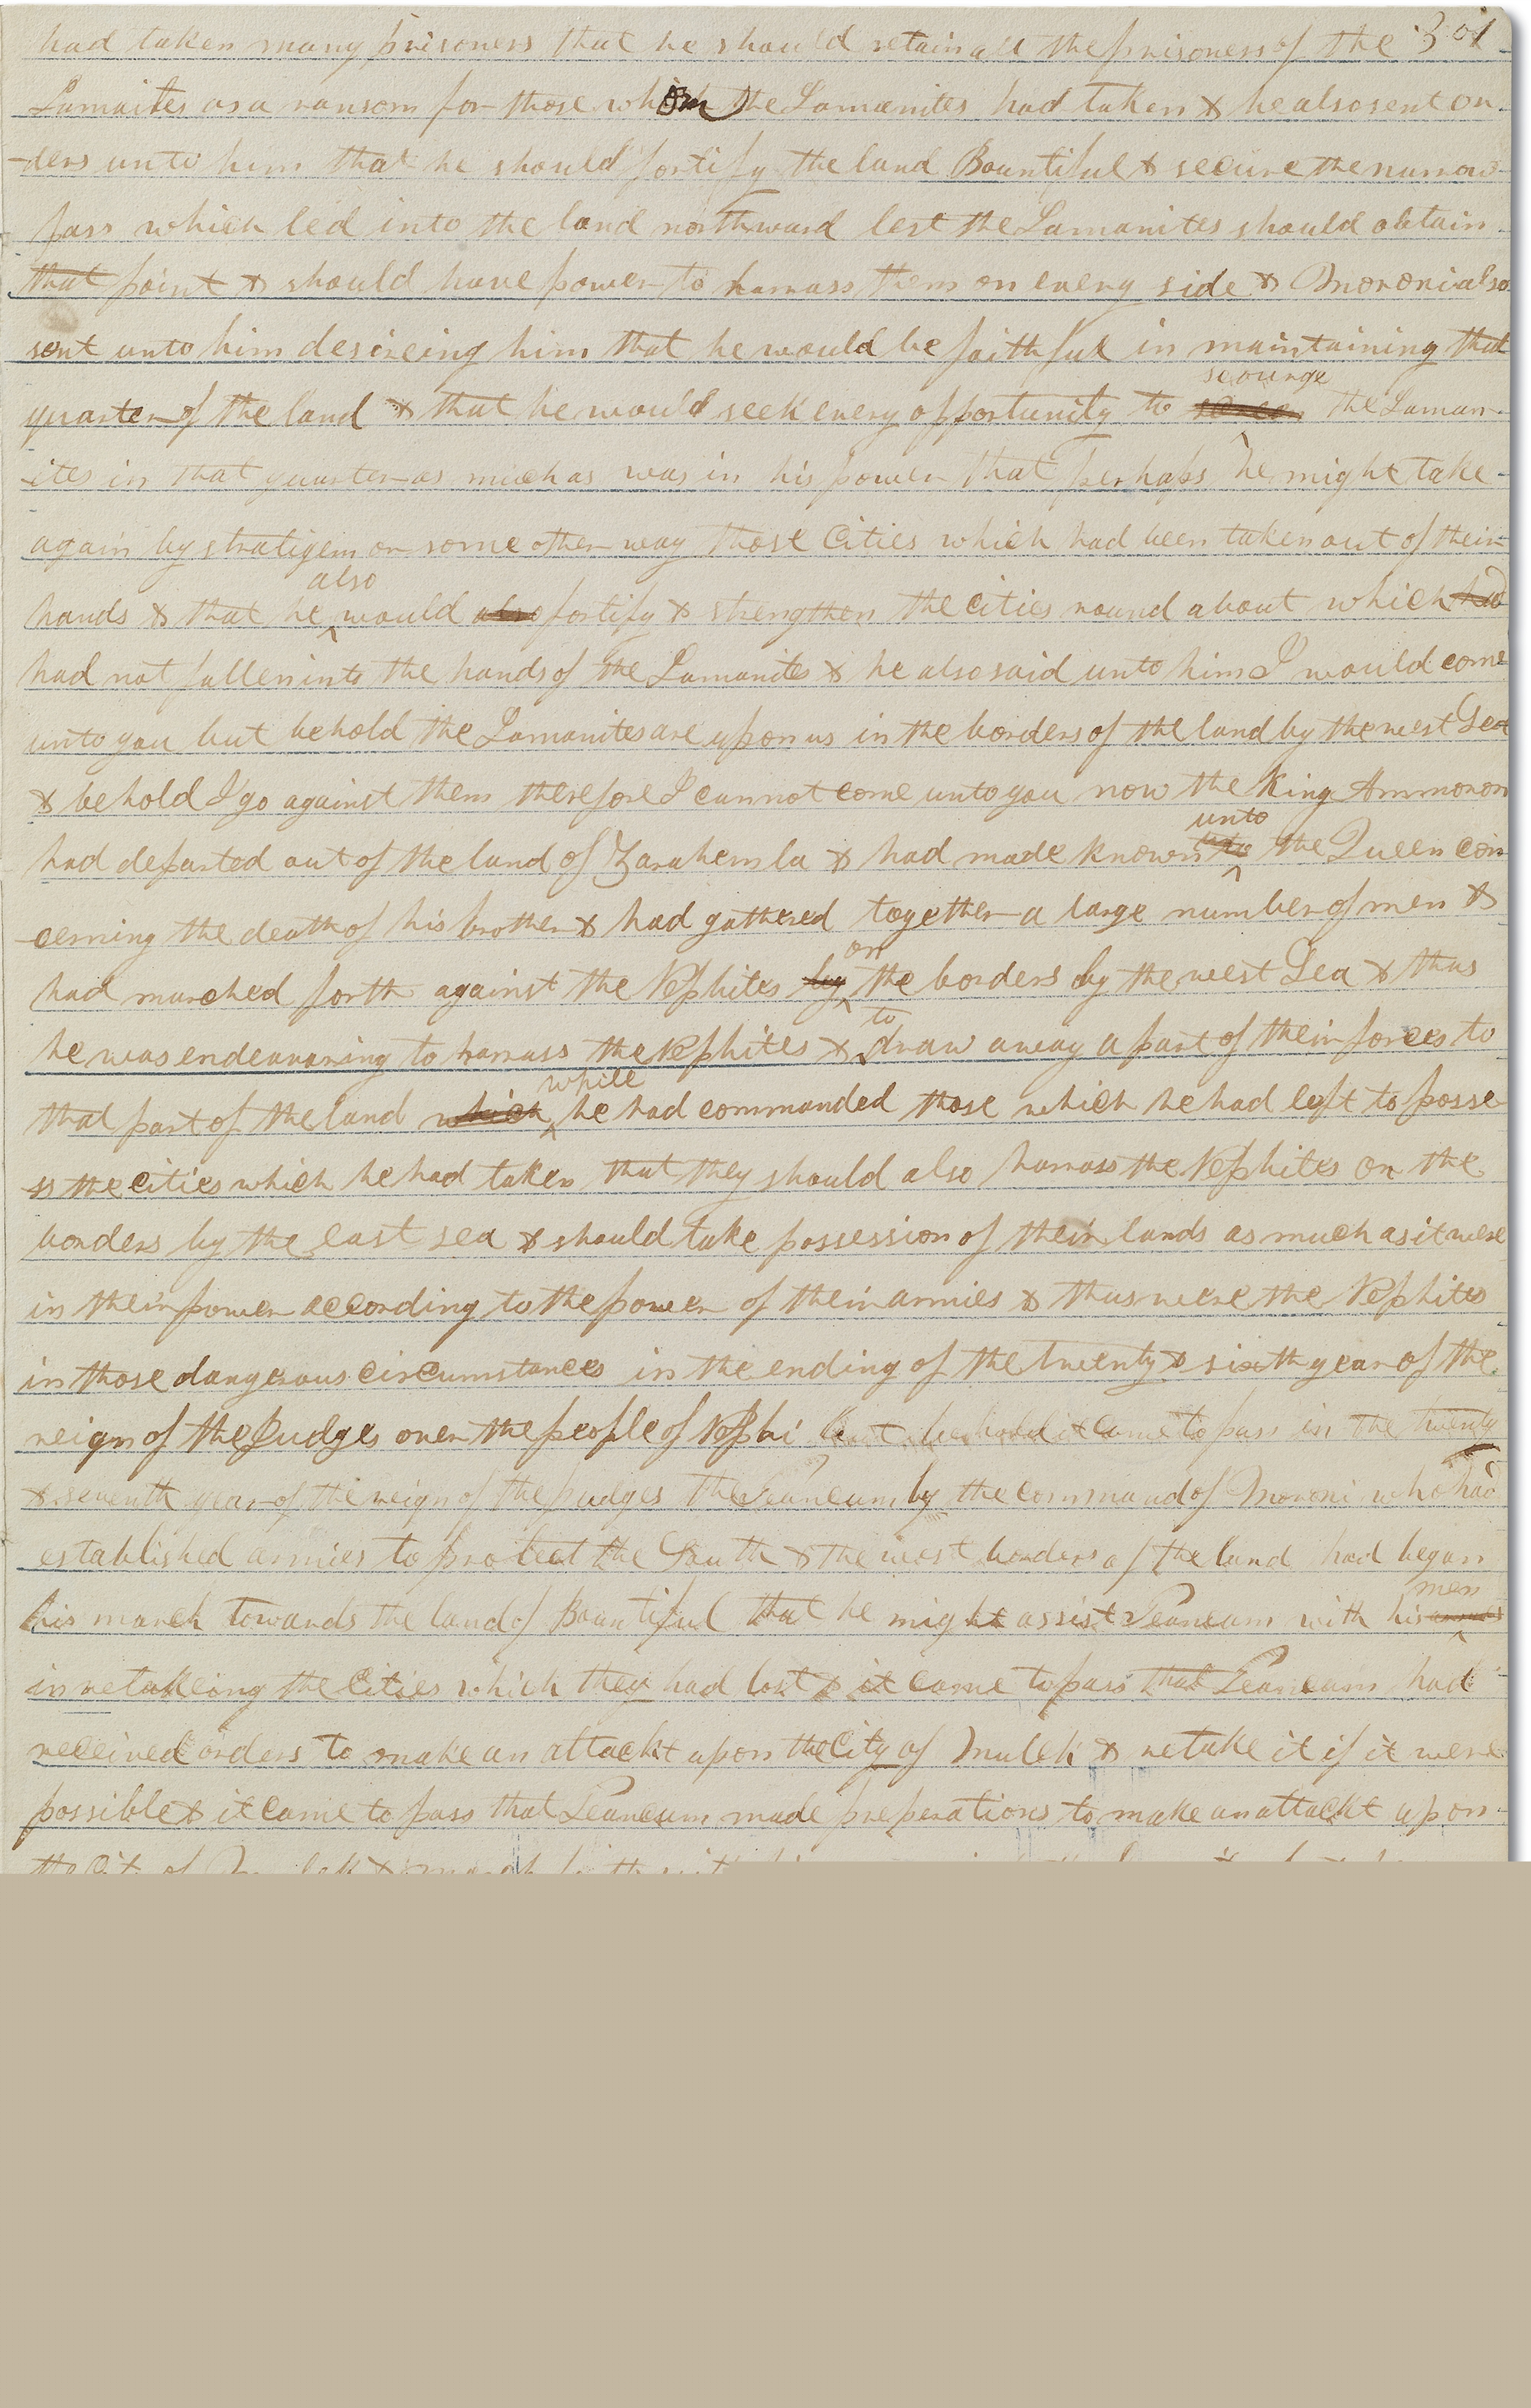 had taken many prisoners that he should retain all the prisoners of the 301
Lamaites as a ransom for those whom the Lamanites had taken & he also sent or
-ders unto him that he should fortify the land Bountiful & secure the narrow
pass which led into the land northward lest the Lamanites should obtain
that point & should have power to harrass them on every side & Moroni also
sent unto him desireing him that he would be faithful in maintaining that
scourge
quarter of the land & that he would seek every opportunity to the Laman-
-ites in that quarter as much as was in his power that perhaps he might take
again by stratigem or some other way those Cities which had been taken out of their
also
hands & that he would also fortify & strengthen the cities round about which had
had not fallen into the hands of the Lamanites & he also said unto him I would come
unto you but behold the Lamanites are upon us in the borders of the land by the west Sea
& behold I go against them therefore I cannot come unto you now the King Ammoron
unto
had departed out of the land of Zarahemla & had made known to the Queen con
-cerning the death of his brother & had gathered together a large number of men &
on
had marched forth against the Nephites by the borders by the west Sea & thus
to
he was endeavaring to harrass the Nephites & draw away a part of their forces to
while
that part of the land which he had commanded those which he had left to posse
ss the cities which he had taken that they should also harrass the Nephites on the
borders by the east sea & should take possession of their lands as much as it were
in their power according to the power of their armies & thus were the Nephites
in those dangerous circumstances in the ending of the twenty & sixth year of the
reign of the Judges over the people of Nephi but behold it came to pass in the twenty
& seventh year of the reign of the judges the Teancum by the command of Moroni who had
established armies to protect the South & the west borders of the land had began
men
his march towards the land of Bountiful that he might assist Teancum with his
in retakeing the Cities which they had lost & it came to pass that Teancum had
received orders to make an attackt upon the City of Mulek & retake it if it were
possible & it came to pass that Teancum made preperations to make an attackt upon